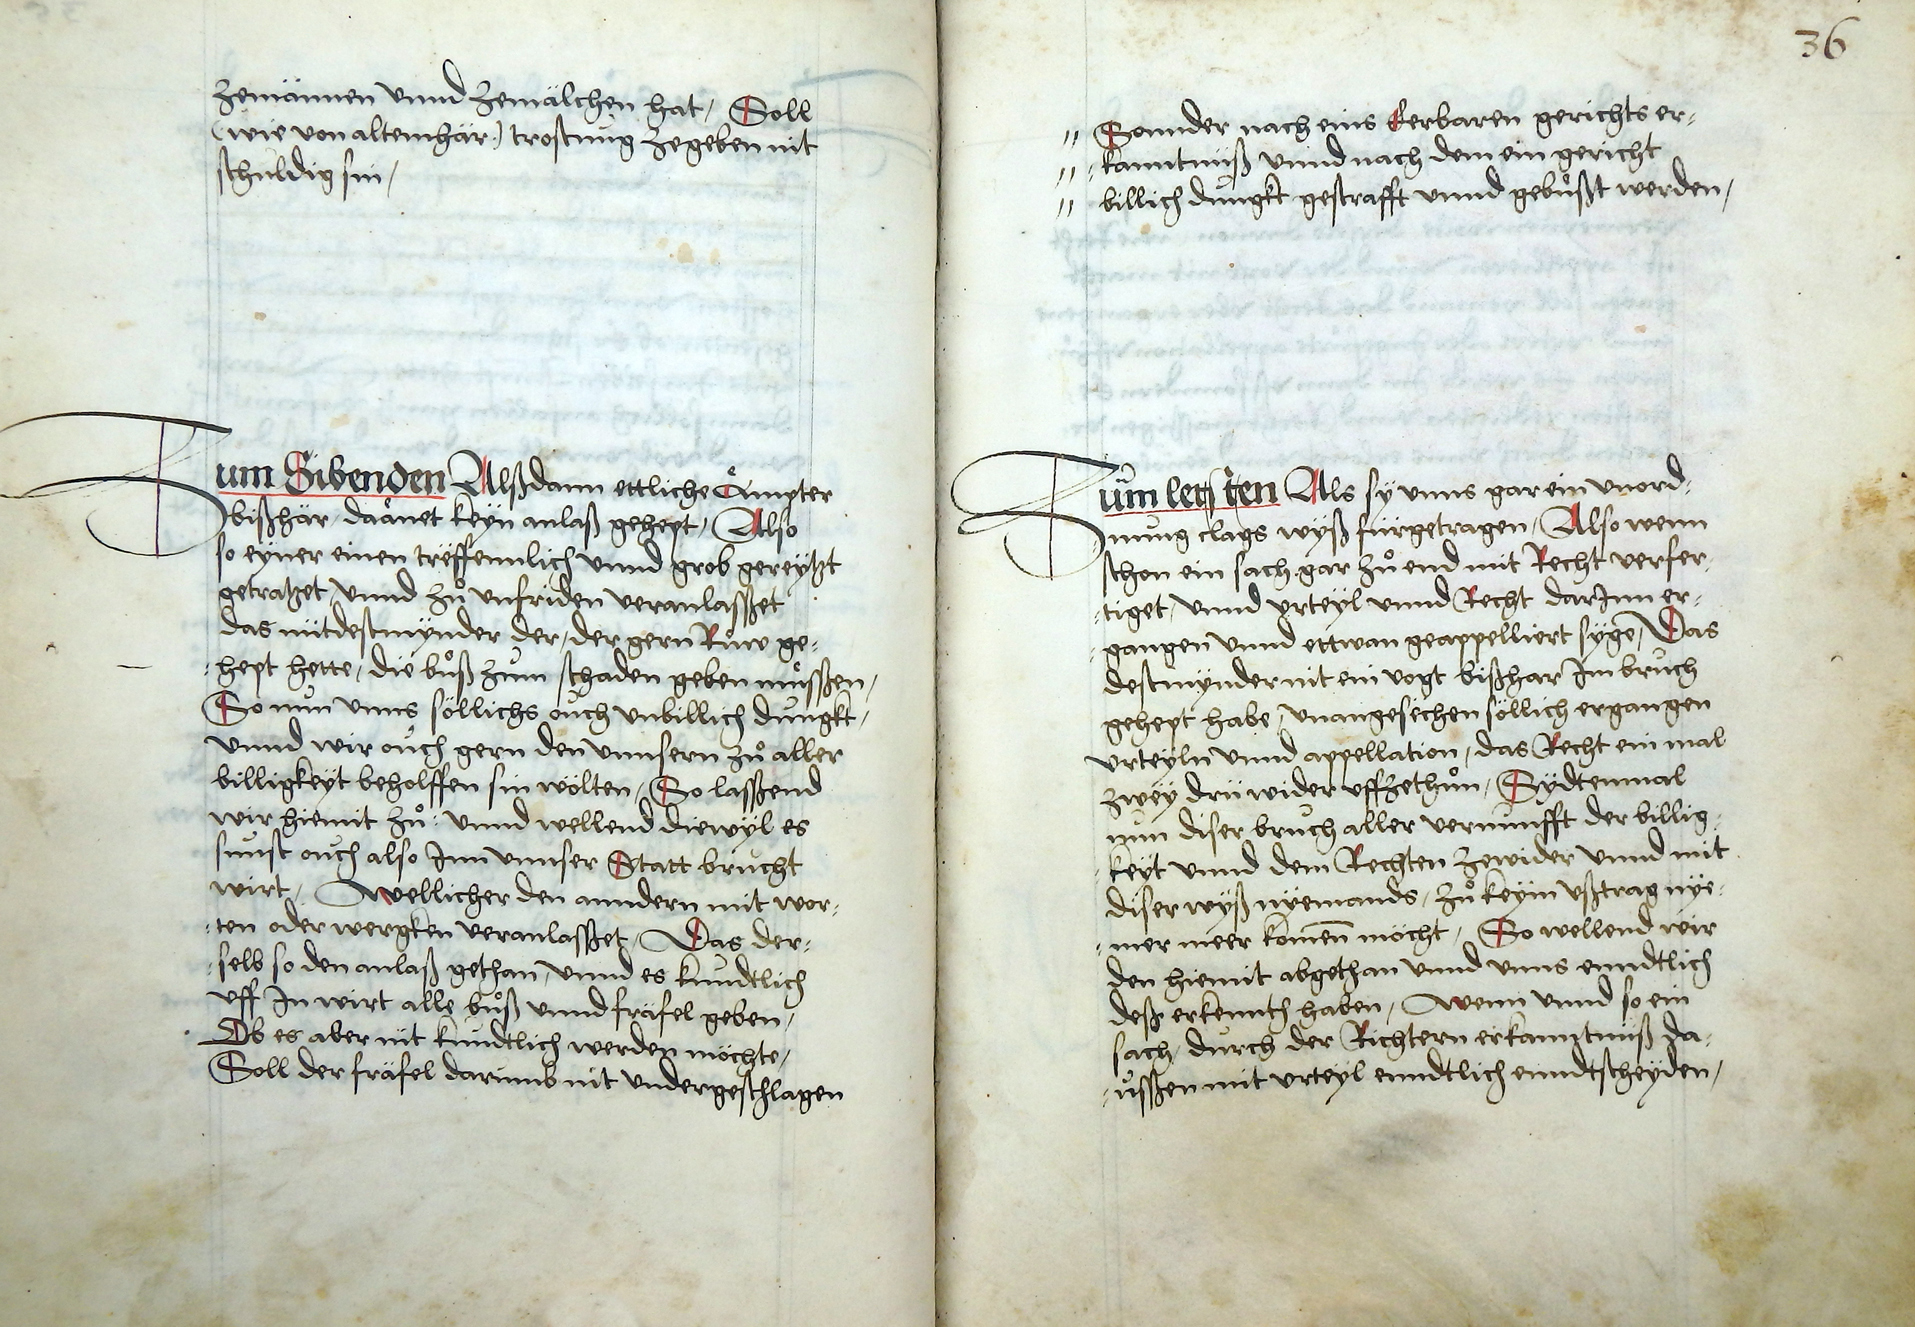 zemännen unnd zemälchen hat / Soll
(wie von altemhär) trostung zegeben nit
schuldig sin /
Zum Sibenden Alßdann ettliche Ämpter
bißhär daänet keyn anlaß gehept / Also
so eyner einen träffennlich unnd grob gereytzt
getratzet unnd zů unfriden veranlasset
das nütdestmynder der / der gern Růw ge-
hept hette / die bůß zum schaden geben müssen /
So nun unns söllichs ouch unbillich dungkt /
unnd wir ouch gern den unnsern zů aller
billigkeyt beholffen sin wölten / So lassend
wir hiemit zů: unnd wellend diewyl es
sunst ouch also Inn unnser Statt brucht
wirt / Wellicher den anndern mit wor-
ten oder wergken veranlasset / Das der-
selb so den anlaß gethan unnd es kundtlich
uff In wirt alle bůß unnd fräfel geben /
Ob es aber nit kundtlich werden möchte /
Soll der fräfel darumb nit undergeschlagen
36
Sonnder nach eins Eerbaren gerichts er-
kanntnuß unnd nach dem ein gericht
billich dungkt gestrafft unnd gebůßt werden /
Zum letsten Als sy unns gar ein unord-
nung clags wyß fürgetragen / Also wenn
schon ein sach gar zů end mit Recht verfer-
tiget / unnd urteyl unnd Recht darInn er-
gangen unnd ettwan geappelliert syge / Das
destmynder nit ein vogt bißhar Im bruch
gehept habe / unangesechen söllich ergangen
urteyln unnd appellation / das Recht ein mal
zwey drü wider uffzethůn / Sydtenmal
nun diser bruch aller vernunfft der billig-
keyt unnd dem Rechten zewider unnd mit
diser wyß nyemands / zů keym ußtrag nye-
mer meer komen möcht / So wellend wir
den hiemit abgethan unnd unns enndtlich
deß erkennth haben / Wenn unnd so ein
sach / durch der Richtern erkanntnuß da-
ussen mit urteyl enndtlich enndtscheyden /